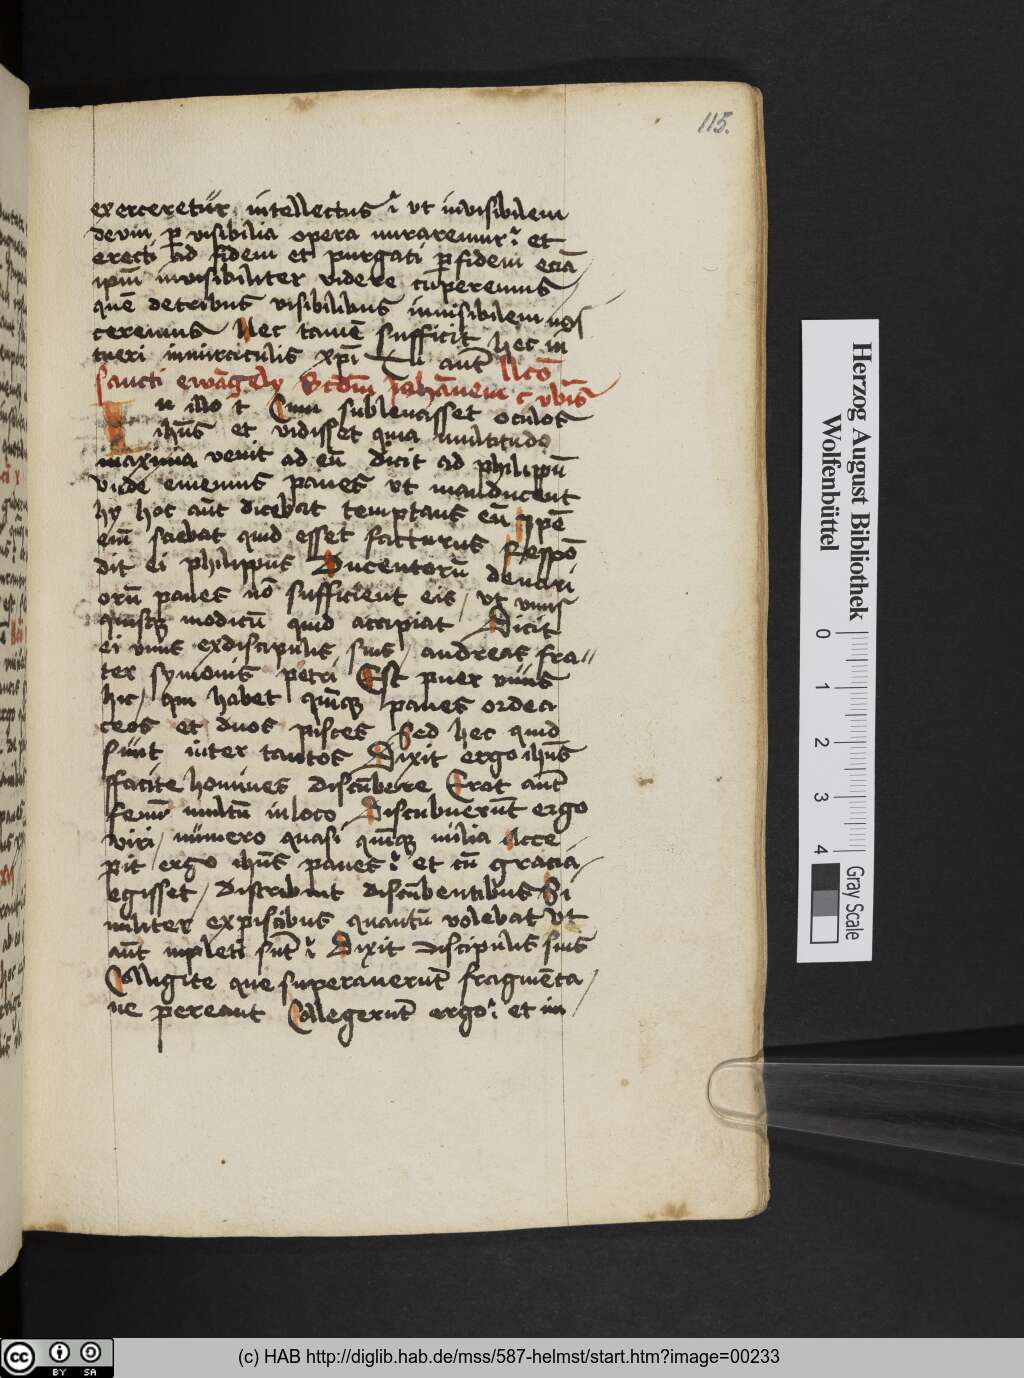 115.
exerceretur intellectus · ut invisibilem
deum p visibilia opera miraremur · et
erecti ad fidem et purgati p fidem eciā
ipm invisibiliter videre cuperemus
quē de rebus visibilibus invisibilem nos
ceremus Nec tamē sufficit hec in
tueri in miraculis xpi Tu aut̄ lcō
sancti ewāgely Scdm Johānem c vbis
In illo t Cum sublevasset oculos
ihūs et vidisset quia multitudo
maxima venit ad eū dicit ad philippū
vnde ememus panes vt manducent
hy hoc aūt dicebat temptans eū ipē
eīm sciebat quid esset facturus Respō
dit ei philippus Ducentorū denari
orū panes nō sufficient eis / vt vnus
quisq modicū quid accipiat / Dicit
ei vnus ex discipulis suis / andreas fra
ter symonis petri Est puer vnus
hic / qui habet quīq panes ordea
ceos et duos pisces Sed hec quid
sunt inter tantos Dixit ergo ihūs
ffacite homines discūbere Erat aut̄
fenū multū in loco Discubuerūt ergo
viri / numero quasi quīq milia Acce
pit ergo ihūs panes · et cū gracia
egisset / distribuit discūbentibus Si
militer ex piscibus quantū volebat Vt
aūt impleti sūt · Dixit discipulis suis
Colligite que superaverūt fragmēta /
ne pereant Collegerūt ergo · et im
Herzog August Bibliothek
Wolfenbüttel
0 1 2 3 4
Gray Scale
cc BY SA
(c) HAB http://diglib.hab.de/mss/587-helmst/start.htm?image=00233